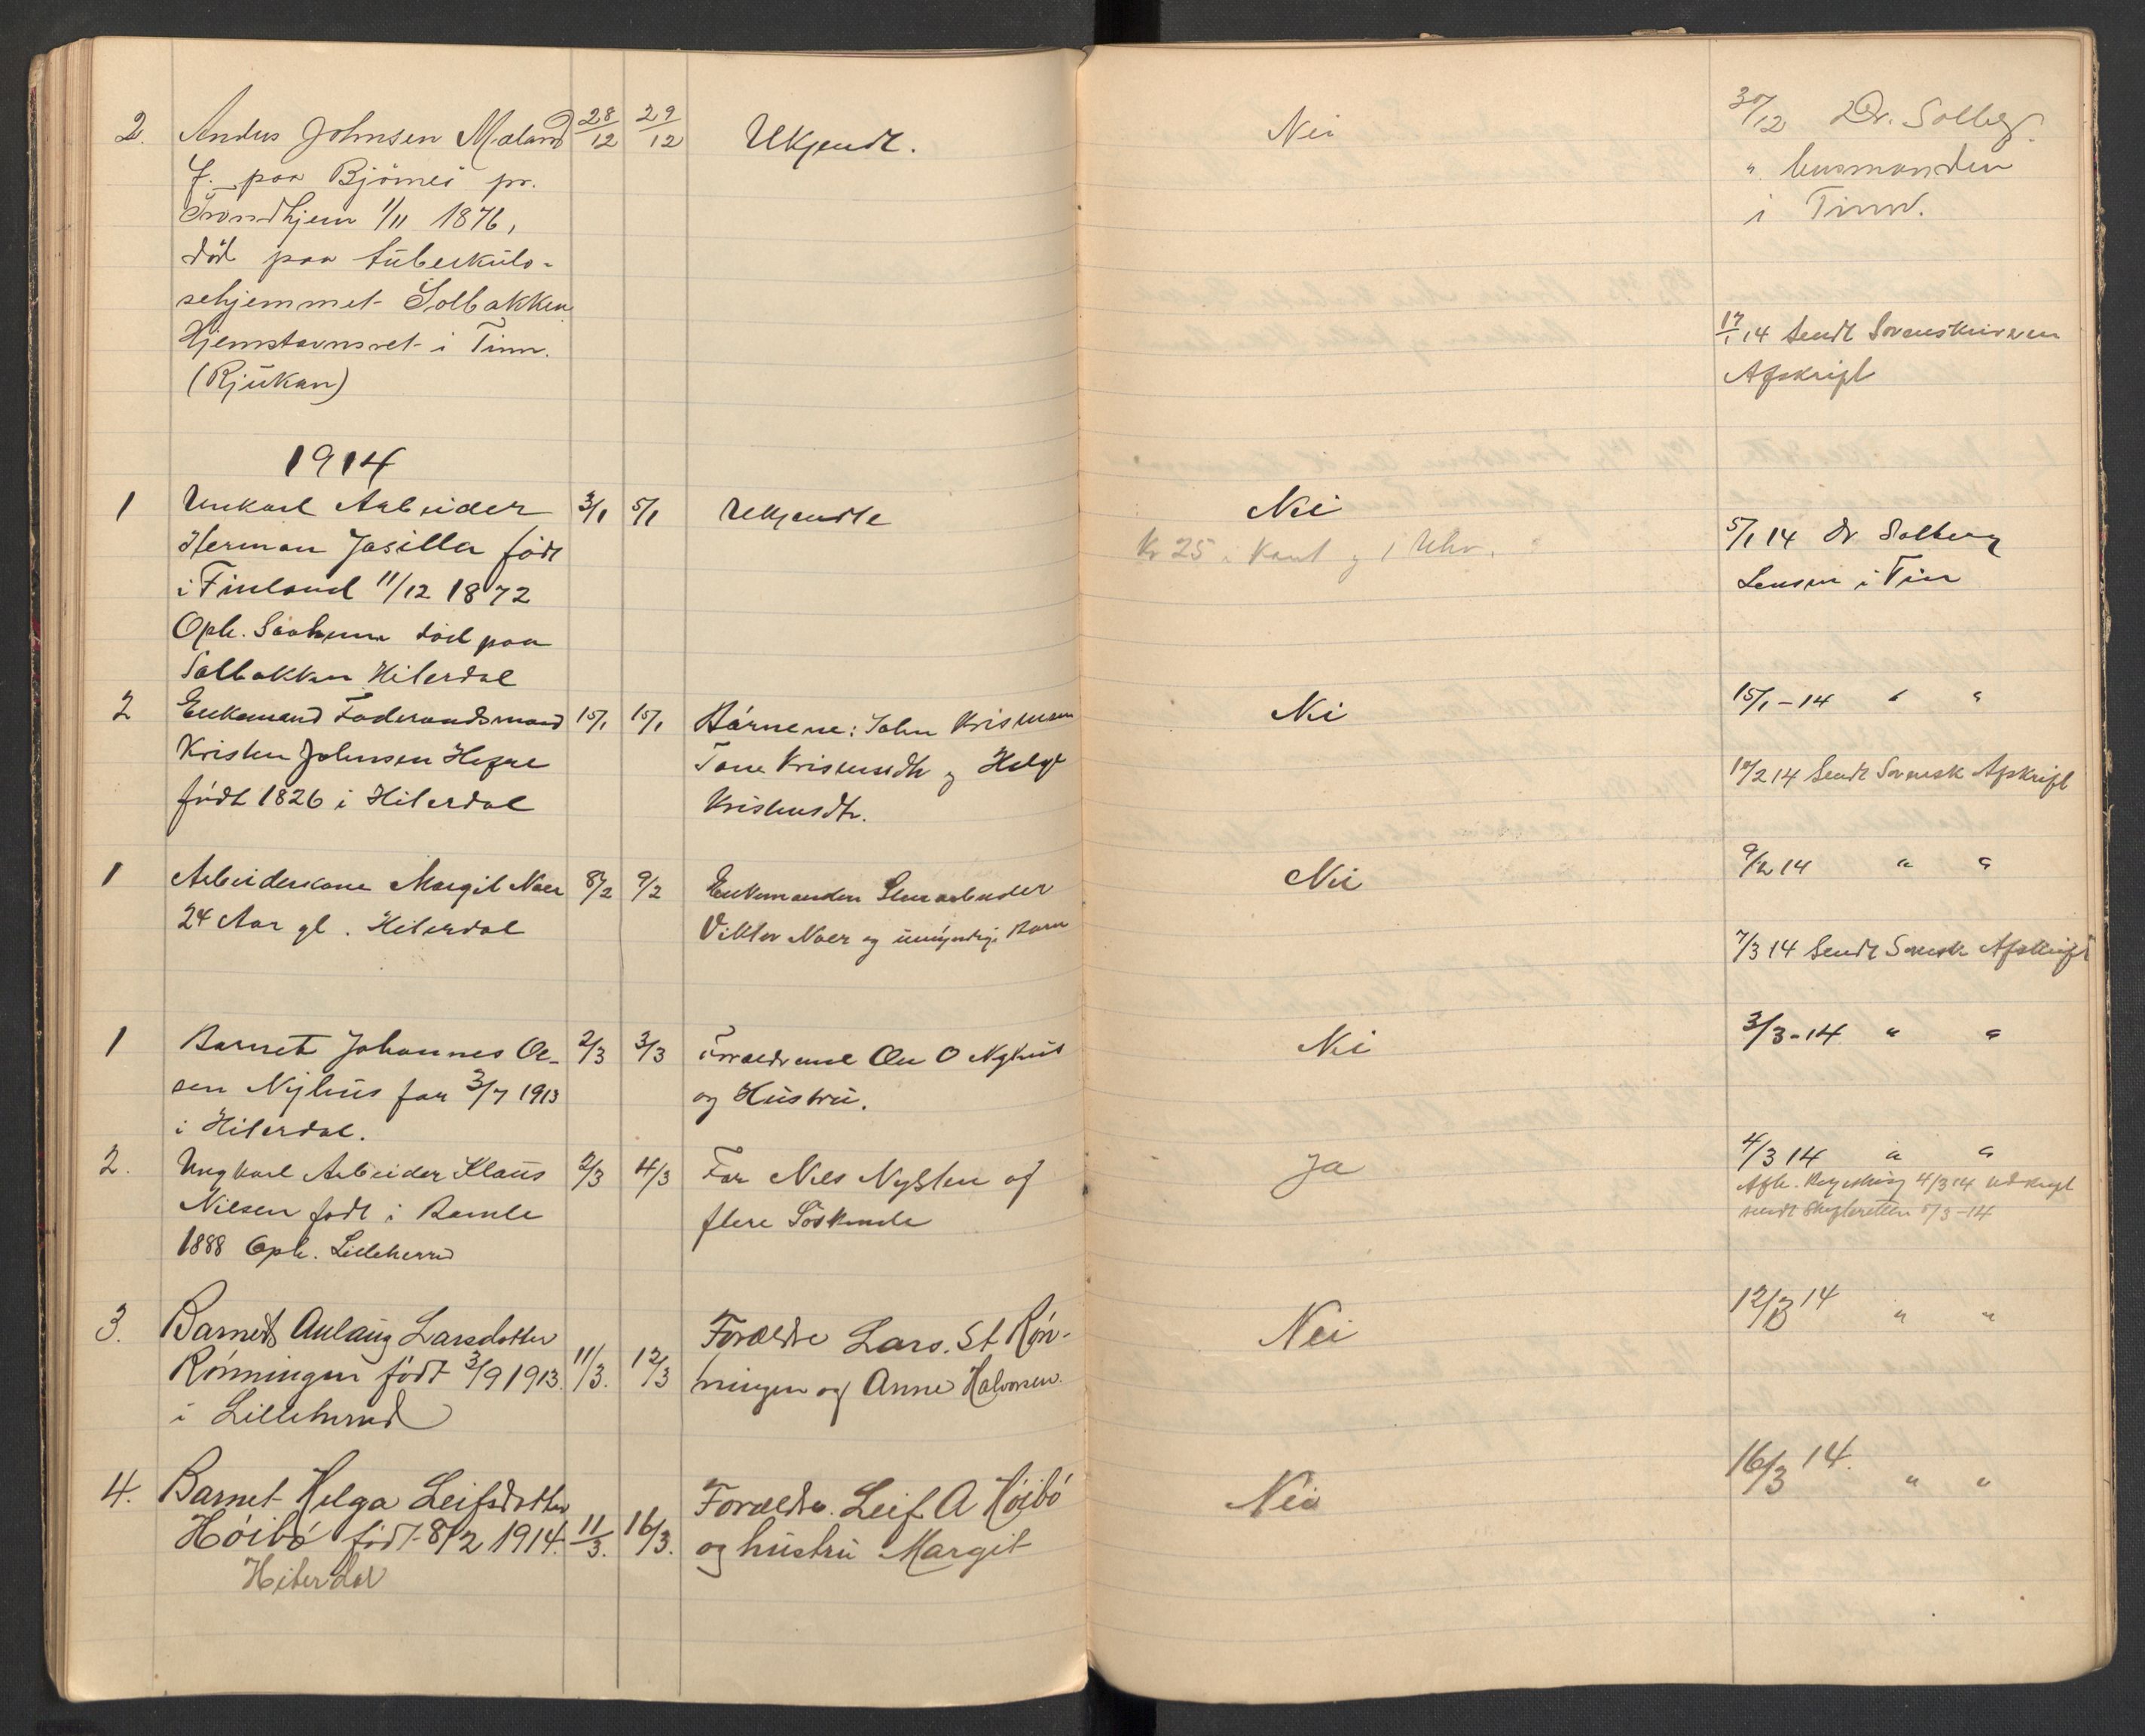 2. Anders Johnsen Maland 28/12 29/12 Ukjendt. Nei 30/12 Dr. Solberg.
f. paa Björnes pr. " lensmanden
Trondhjem 1/11 1876, i Tinn.
död paa tüberkülo-
sehjemmet Solbakken
Hjemstavnsret i Tinn. 17/1 14 Sendt Sorenskriveren
(Rjükan) Afskrift
1914
1 Unkarl Arbeider 3/1 5/1 Ukjendte Nei
Herman Jasilla födt Kr 25 i Kont og 1 Uhr. 5/1 14 Dr Solberg
i Finland 11/12 1872 Lensm i Tin
Oph. död paa
Solbakken Hiterdal
2 Enkemand Föderaadsmand 15/1 15/1 Börnene: John Kristensen Nei 15/1-14 " "
Kristen Johnsen Hegne Tone Kristensdtr og Helge 10/2 14 Sendt Sorensk Afskrift
födt 1826 i Hiterdal Kristensdtr.
1 Arbeiderkone Margit Noer 8/2 9/2 Enkemanden Nei 9/2 14 " "
24 Aar gl. Hiterdal Viktor Noer og ümÿndige Barn
7/3 14 Sendt Sorensk Afskrift
1 Barnet Johannes Ol- 2/3 3/3 Forældrene Ole O Nyhus Nei 3/3-14 " "
sen Nyhüs for 3/7 1913 og Hüstrü.
i Hiterdal.
2. Ungkarl Arbeider Klaüs 2/3 4/3 Far Nils Nysten og Ja 4/3 14 " "
Nilsen födt i Bamle flere Söskende Afh. 4/3 14 udskrift
1888 Oph. Lilleherred sendt Skifteretten 5/3-14
3. Barnet Aulaug Larsdotter Forældre Lars. St Rön- Nei 12/3 14 " "
Rönningen födt 3/9 1913. 11/3. 12/3 ningen og Anne Halvorsen.
i Lilleherred
4. Barnet Helga Leifsdotter Forældre. Leif A Höibö Nei 16/3 14. " "
Höibö födt 8/2 1914. 11/3. 16/3. og hüstrü Margit
Hiterdal